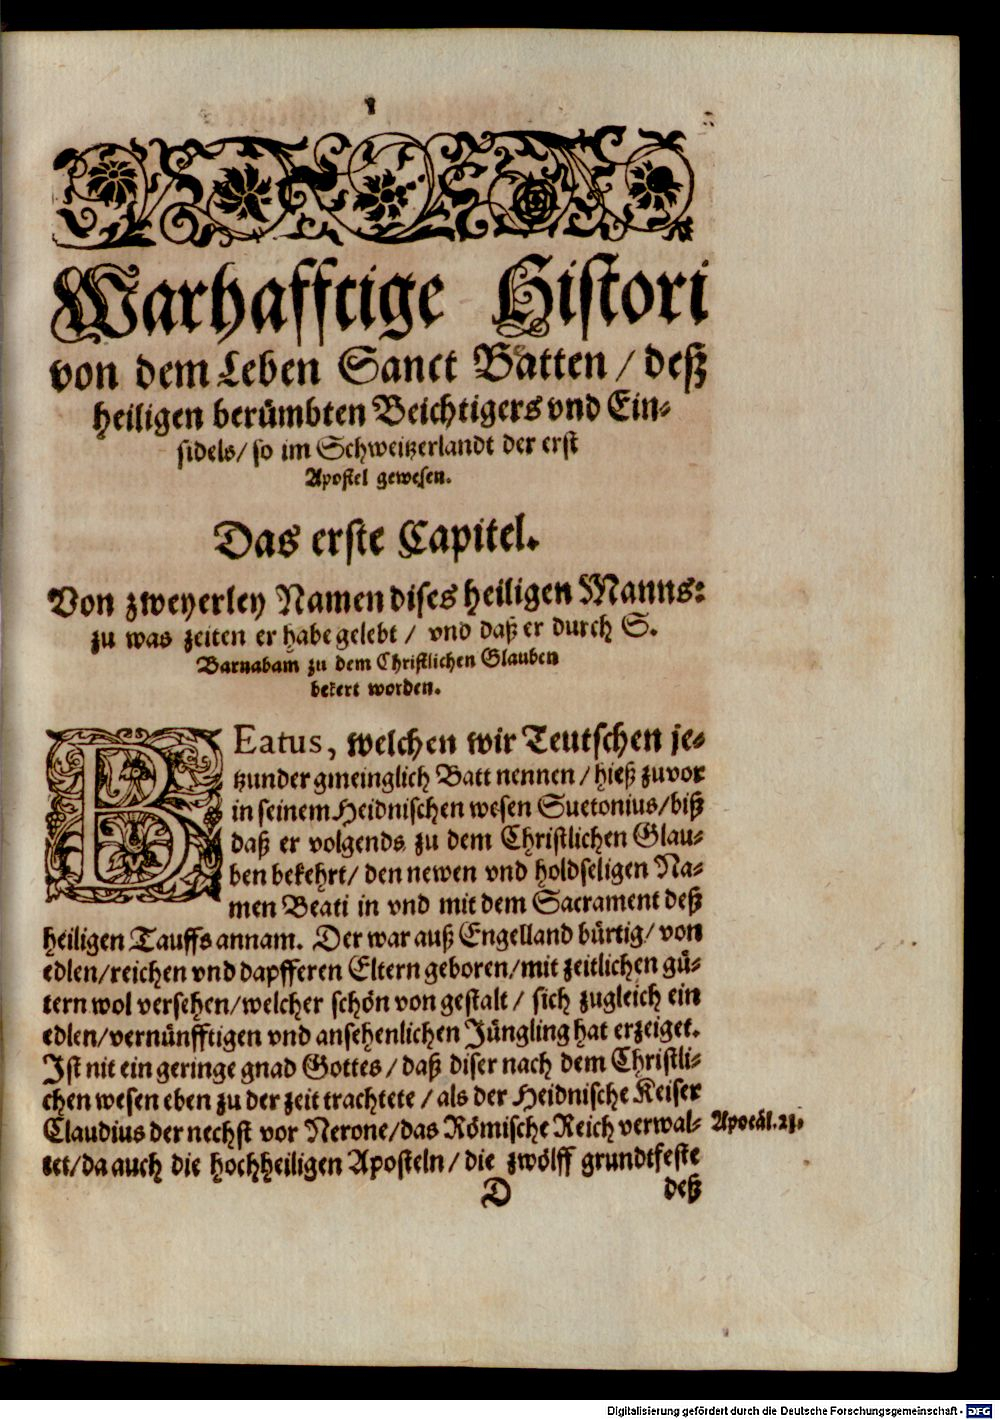 1
Warhafftige Histori
von dem Leben Sanct Batten / deß
heiligen berümbten Beichtigers vnd Ein-
sidels/ so im Schweitzerlandt der erst
Apostel gewesen.
Das erste Capitel.
Von zweyerley Namen dises heiligen Manns:
zu was zeiten er habe gelebt / vnd daß er durch S.
Barnabam zu dem Christlichen Glauben
bekert worden.
BEatus, welchen wir Teutschen je-
tzunder gmeinglich Batt nennen / hieß zuvor
in seinem Heidnischen wesen Suetonius/ biß
daß er volgends zu dem Christlichen Glau-
ben bekehrt/ den newen vnd holdseligen Na-
men Beati in vnd mit dem Sacrament deß
heiligen Tauffs annam. Der war auß Engelland bürtig/ von
edlen/ reichen vnd dapfferen Eltern geboren/ mit zeitlichen gü-
tern wol versehen/ welcher schön von gestalt / sich zugleich ein
edlen/ vernünfftigen vnd ansehenlichen Jüngling hat erzeiget.
Ist nit ein geringe gnad Gottes / daß diser nach dem Christli-
chen wesen eben zu der zeit trachtete / als der Heidnische Keiser
Claudius der nechst vor Nerone/ das Römische Reich verwal-
tet/ da auch die hochheiligen Aposteln / die zwölff grundtfeste
Apocal. 21.
D deß
Digitalisierung gefördert durch die Deutsche Forschungsgemeinschaft - DFG